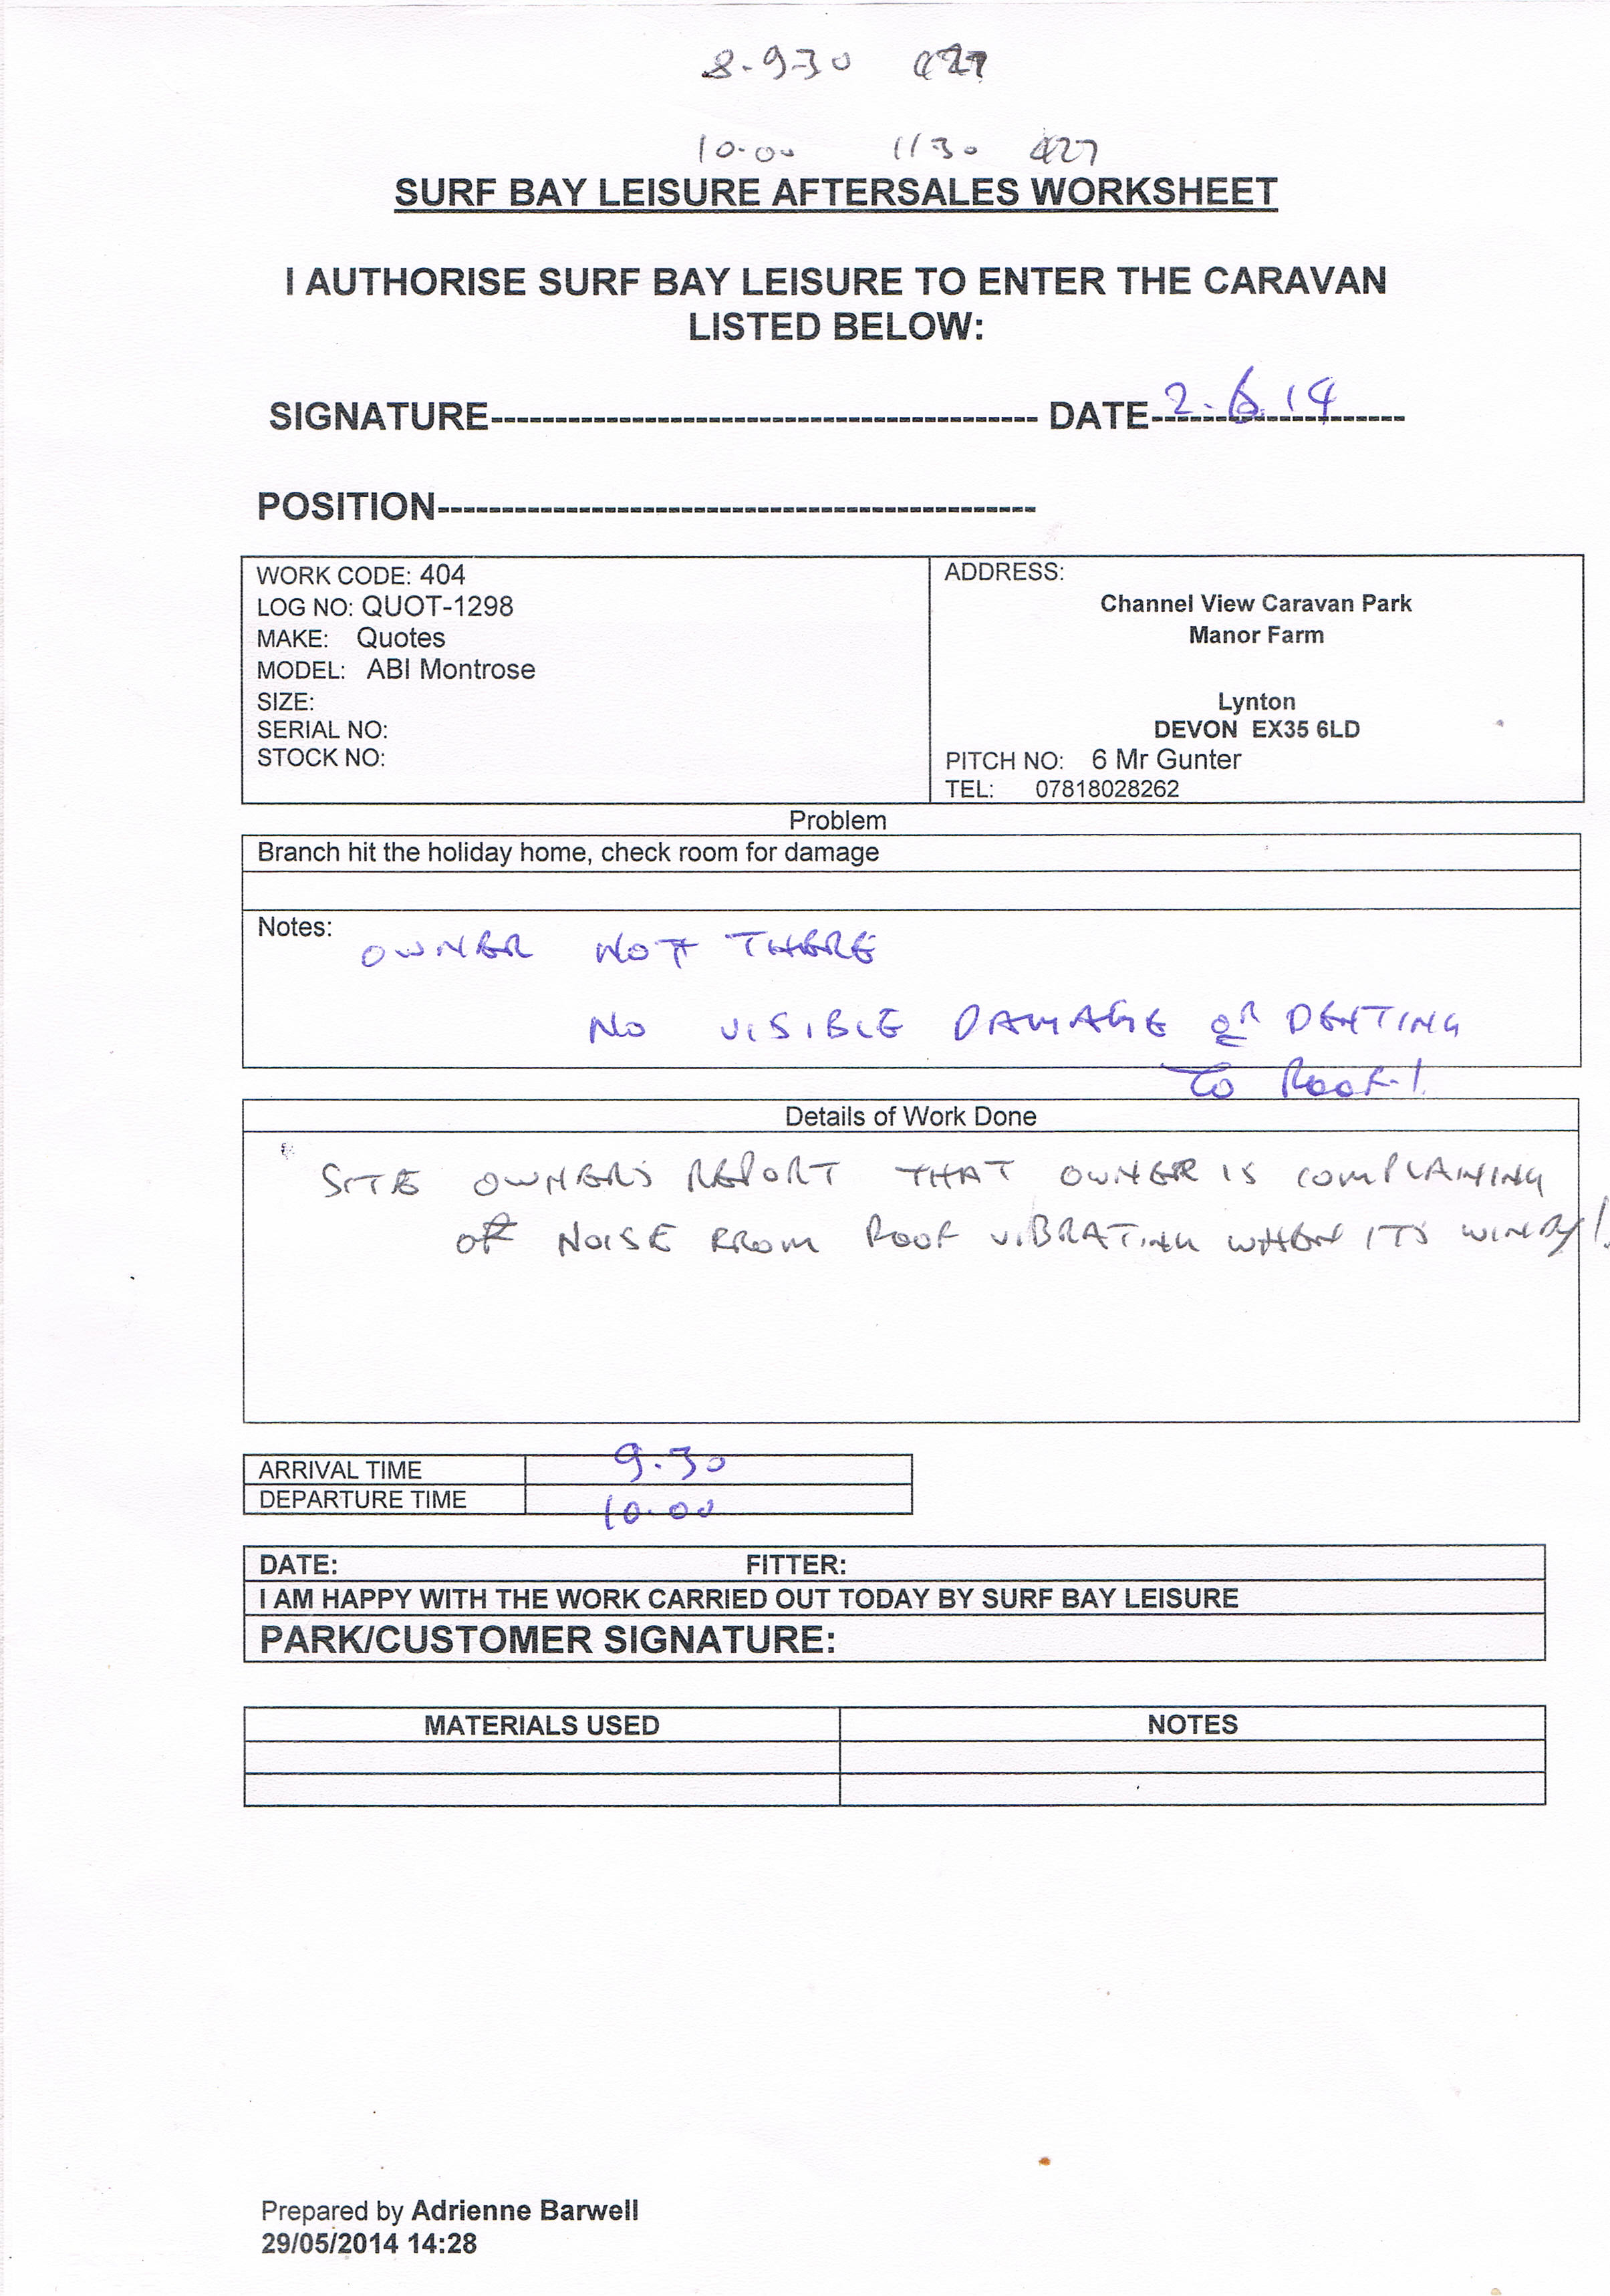 8-9-30 427
10.00 11 30 427
SURF BAY LEISURE AFTERSALES WORKSHEET
I AUTHORISE SURF BAY LEISURE TO ENTER THE CARAVAN
LISTED BELOW:
SIGNATURE------------------------------------------ DATE 2.6.14
POSITION----------------------------------------------
WORK CODE: 404
LOG NO: QUOT-1298
MAKE: Quotes
MODEL: ABI Montrose
SIZE:
SERIAL NO:
STOCK NO:
ADDRESS:
Channel View Caravan Park
Manor Farm
Lynton
DEVON EX35 6LD
PITCH NO: 6 Mr Gunter
TEL: 07818028262
Problem
Branch hit the holiday home, check room for damage
Notes:
OWNER NOT THERE
NO VISIBLE DAMAGE OR DENTING
TO ROOF.!
Details of Work Done
SITE OWNERS REPORT THAT OWNER IS COMPLAINING
OF NOISE FROM ROOF VIBRATING WHEN ITS WINDY!
ARRIVAL TIME 9.30
DEPARTURE TIME 10.00
DATE: FITTER:
I AM HAPPY WITH THE WORK CARRIED OUT TODAY BY SURF BAY LEISURE
PARK/CUSTOMER SIGNATURE:
MATERIALS USED NOTES
Prepared by Adrienne Barwell
29/05/2014 14:28